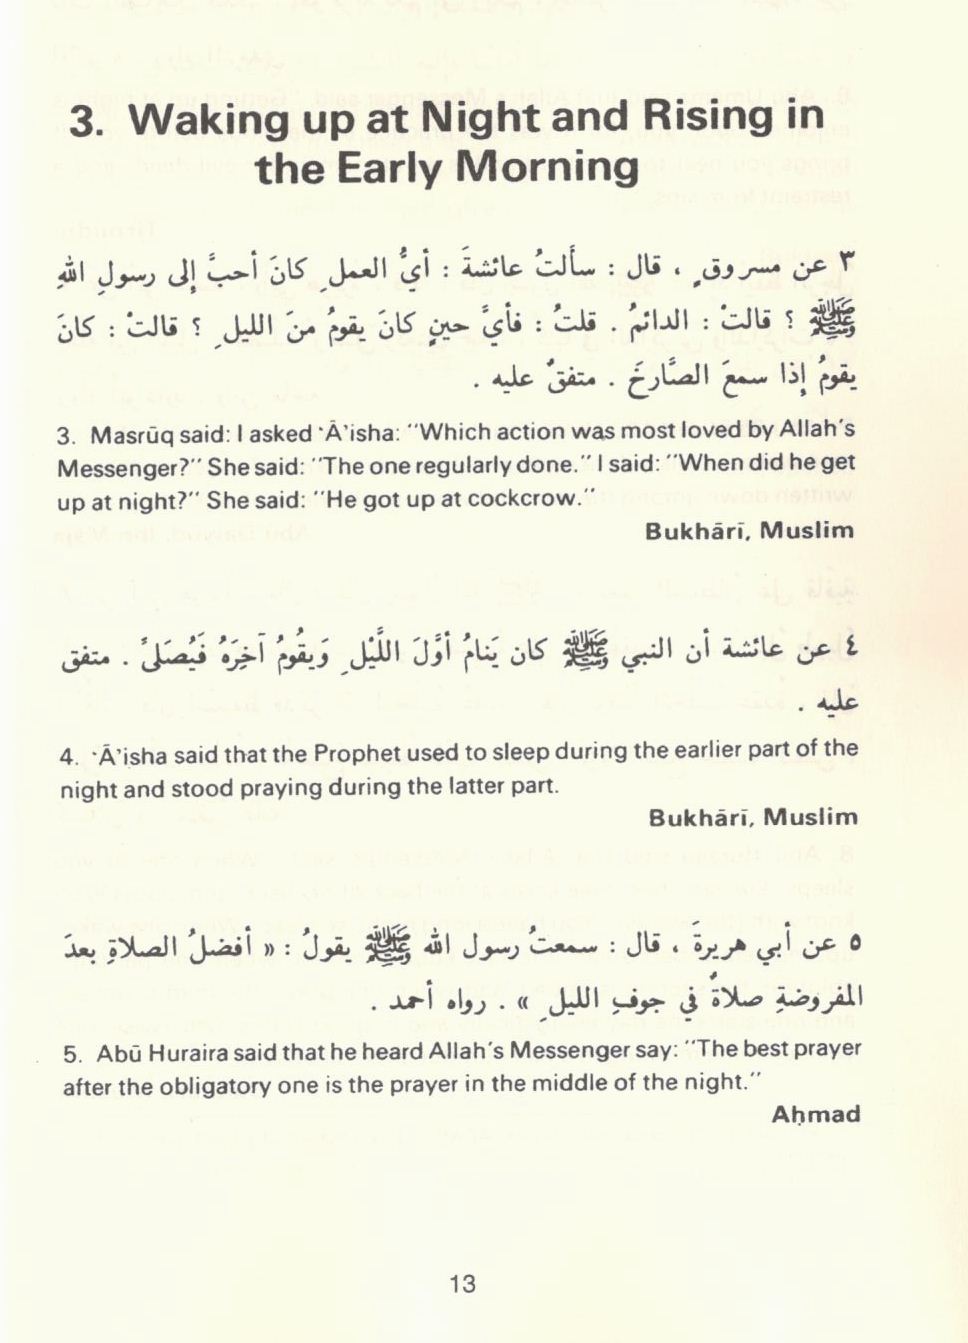 3. Waking up at Night and Rising in
the Early Morning
٣ عن مسروقٍ ، قال : سألتُ عائشةَ : أيُّ العملِ كانَ أحبَّ إلى رسولِ اللهِ
ﷺ ؟ قالتْ : الدائمُ . قلتُ : فأيَّ حينٍ كانَ يقومُ منَ الليلِ ؟ قالتْ : كانَ
يقومُ إذا سمعَ الصَّارخَ . متفقٌ عليه .
3. Masrūq said: I asked ‘Ā’isha: “Which action was most loved by Allah’s
Messenger?” She said: “The one regularly done.” I said: “When did he get
up at night?” She said: “He got up at cockcrow.”
Bukhārī, Muslim
٤ عن عائشة أن النبي ﷺ كان يَنامُ أوَّلَ اللَّيْلِ وَيقُومُ آخِرَهُ فَيُصَلىَّ . متفق
عليه .
4. ‘Ā’isha said that the Prophet used to sleep during the earlier part of the
night and stood praying during the latter part.
Bukhārī, Muslim
٥ عن أبي هريرةَ ، قال : سمعتُ رسول الله ﷺ يقولُ : « أفضلُ الصلاةِ بعدَ
المفروضةِ صلاةٌ في جوفِ الليلِ » . رواه أحمد .
5. Abū Huraira said that he heard Allah’s Messenger say: “The best prayer
after the obligatory one is the prayer in the middle of the night.”
Aḥmad
13